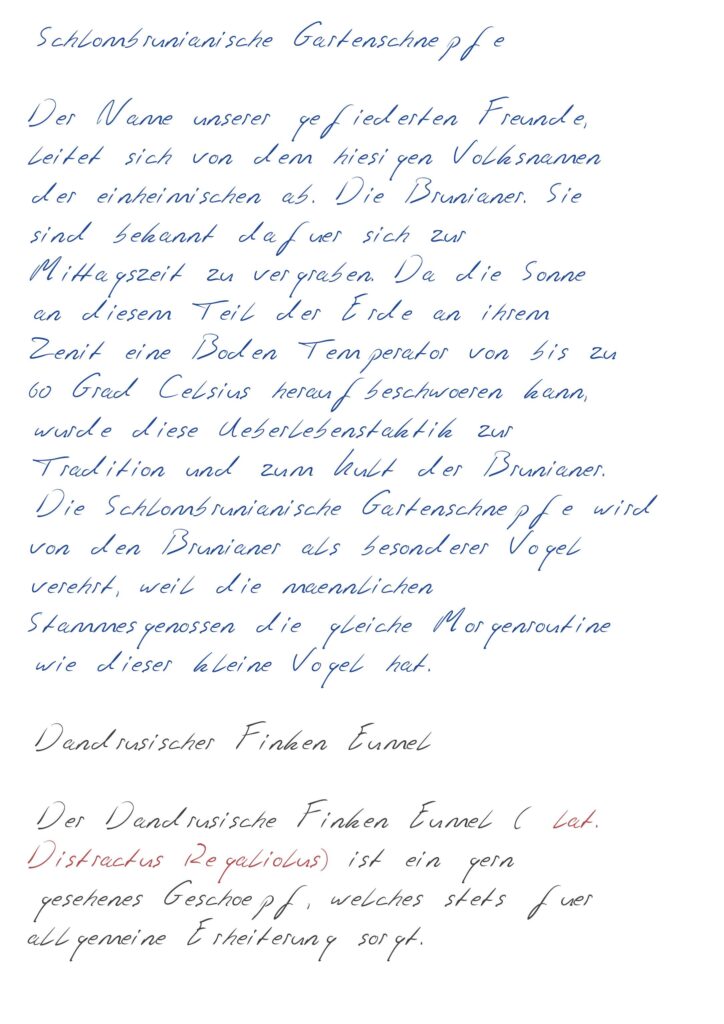 Schlombrunianische Gartenschnepfe
Der Name unserer gefiederten Freunde,
leitet sich von dem hiesigen Volksnamen
der einheimischen ab. Die Brunianer. Sie
sind bekannt dafuer sich zur
Mittagszeit zu vergraben. Da die Sonne
an diesem Teil der Erde an ihrem
Zenit eine Boden Temperator von bis zu
60 Grad Celsius heraufbeschwoeren kann,
wurde diese Ueberlebenstaktik zur
Tradition und zum Kult der Brunianer.
Die Schlombrunianische Gartenschnepfe wird
von den Brunianer als besonderer Vogel
verehrt, weil die maennlichen
Stammesgenossen die gleiche Morgenroutine
wie dieser kleine Vogel hat.
Dandrusischer Finken Eumel
Der Dandrusische Finken Eumel ( lat.
Distractus Regaliolus) ist ein gern
gesehenes Geschoepf, welches stets fuer
allgemeine Erheiterung sorgt.